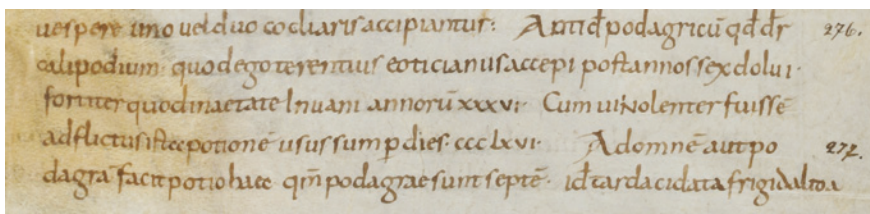 uespere uno uel duo cocliaris accipiantur: Antid̄ podagricū qd̄ dr̄ 276.
calipodium quod ego terentius eoticianus accepi post annos sex dolui
fortiter quod in aetate Inueni annorū xxxvi· Cum uiNolenter fuissē
adflictus istae potionē usus sum p̄ dies· ccclxvi· Ad omnē aut po 277.
dagrā facit potio haec qm̄ podagrae sunt septē· id̄ tarda cidata frigida